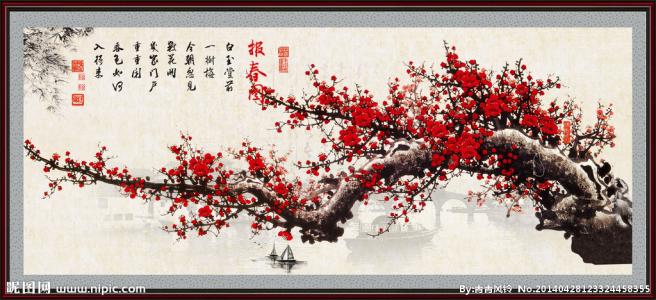 报春图
白玉堂前
一樹梅
今朝忽見
數花開
門戶
重重
春色如何
入得来
昵图网 www.nipic.com
By:青青风铃 No.20140428123324458355